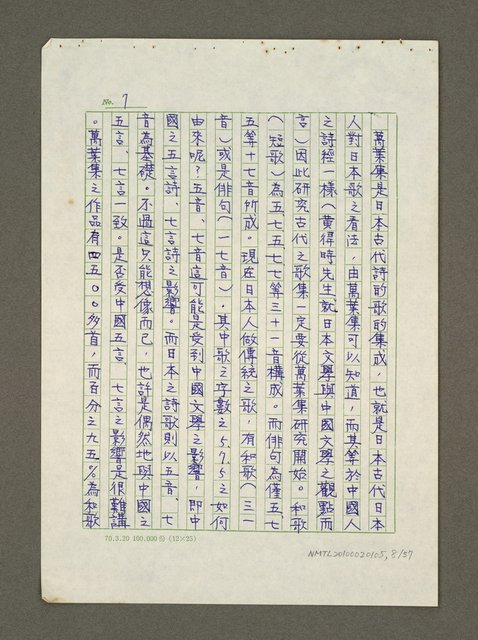 No. 7
萬葉集是日本古代詩的歌的集成，也就是日本古代日本
人對日本歌之看法，由萬葉集可以知道，而其等於中國人
之詩經一樣（黃得時先生就日本文學與中國文學之觀點而
言）因此研究古代之歌集一定要從萬葉集研究開始。和歌
（短歌）為五、七、五、七、七等三十一音構成。而俳句為僅五七
五等十七音所成。現在日本人做傳統之歌，有和歌（三一
音）或是俳句（一七音），其中歌之字數之5.7.5之如何
由來呢？五音、七音這可能是受到中國文學之影響，即中
國之五言詩、七言詩之影響。而日本之詩歌則以五音、七
音為基礎。不過這只能想像而已，也許是偶然地與中國之
五言、七言一致。是否受中國五言、七言之影響是很難講
。萬葉集之作品有四五００多首，而百分之九五％為和歌
70.3.20 100.000份 (12×25)
NMTL20100020105, 8/57